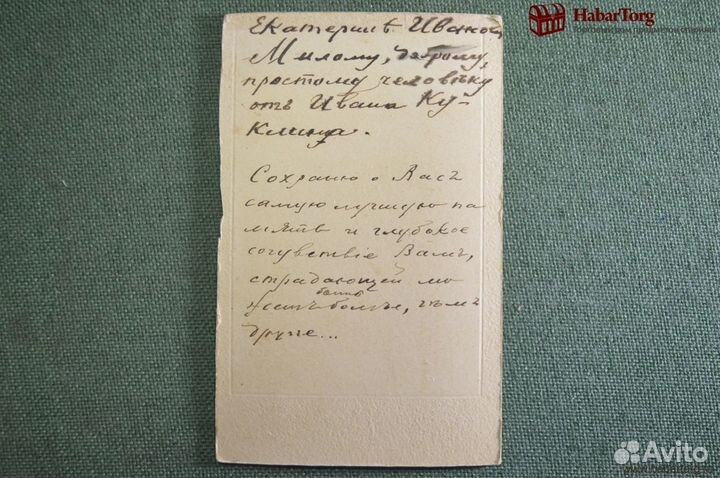 HabarTorg
Екатеринѣ Ивановн
Милому, доброму,
простому человѣку
отъ Ивана Ку-
клина.
Сохраню о Васъ
самую лучшую па
мять и глубокое
сочувствіе Вамъ,
страдающей мо
быть
жетъ болѣе, чѣмъ
другіе...
Avito